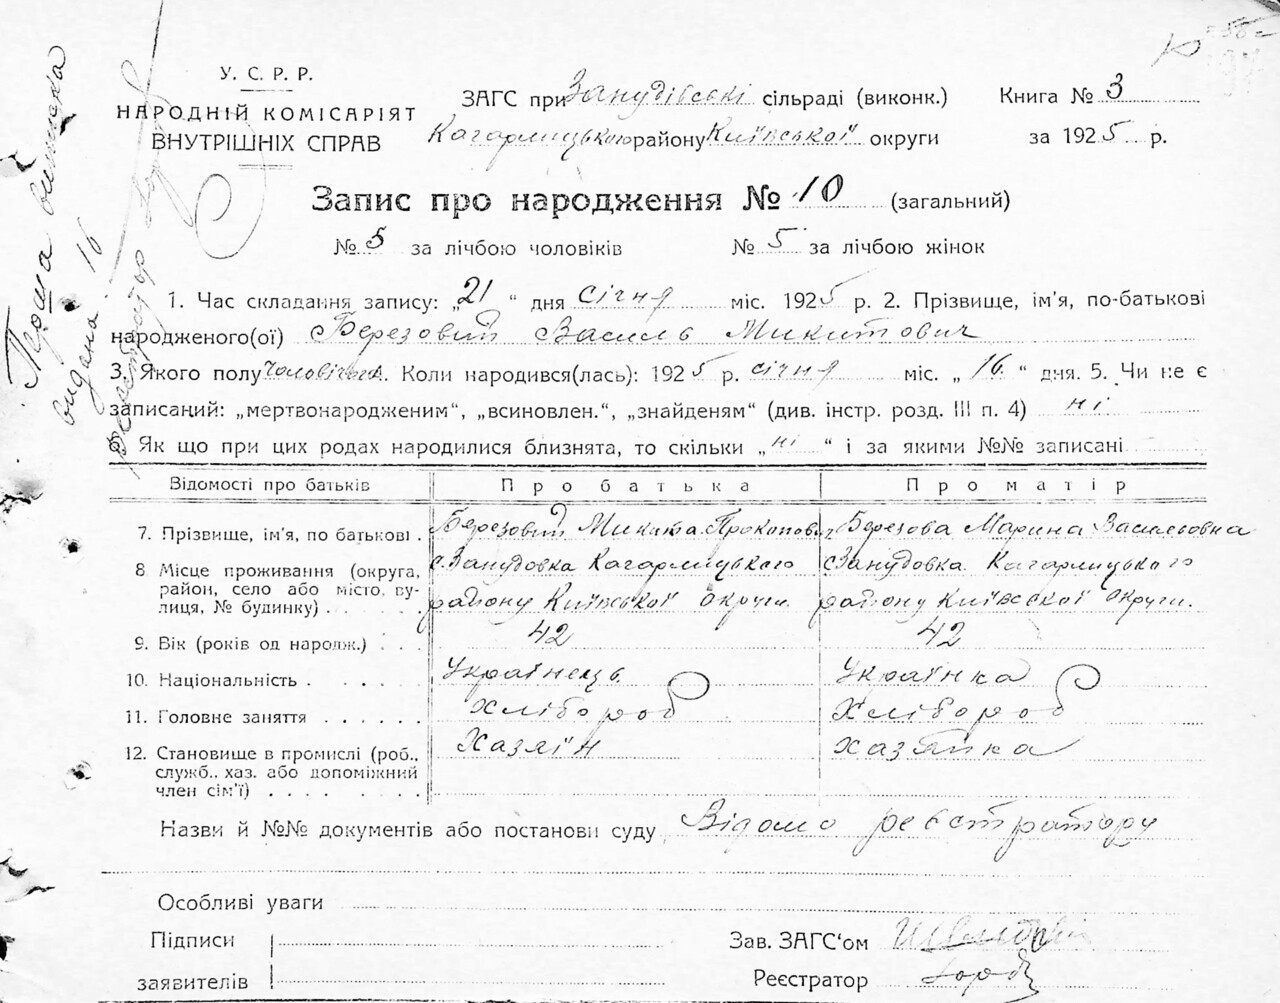 У. С. Р. Р.
НАРОДНІЙ КОМІСАРІЯТ
ВНУТРІШНІХ СПРАВ
ЗАГС при Занудівські сільраді (виконк.)
Кагарлицького району Київської округи
Книга № 3
за 1925 р.
Перша виписка
видана 16
Реєстратор
Запис про народження № 10 (загальний)
№ 5 за лічбою чоловіків № 5 за лічбою жінок
1. Час складання запису: „21“ дня січня міс. 1925 р. 2. Прізвище, ім'я, по-батькові
народженого(ої) Березовий Василь Микитович
3. Якого полу чоловічого 4. Коли народився(лась): 1925 р. січня міс. „16“ дня. 5. Чи не є
записаний: „мертвонародженим“, „всиновлен.“, „знайденям“ (див. інстр. розд. III п. 4) ні
6 Як що при цих родах народилися близнята, то скільки „ні“ і за якими №№ записані
Відомості про батьків Про батька Про матір
7. Прізвище, ім'я, по батькові . Березовий Микита Прокопович Березова Марина Васильовна
8 Місце проживання (округа, район, село або місто, вулиця, № будинку) . . . с. Занудовка Кагарлицького району Київської округи. с. Занудовка Кагарлицького району Київської округи.
9. Вік (років од народж.) . . . 42 42
10. Національність . . . . . Українець Українка
11. Головне заняття . . . . . . Хлібороб Хлібороб
12. Становище в промислі (роб., служб., хаз. або допоміжний член сім'ї) . . . . . . . . Хазяїн Хазяйка
Назви й №№ документів або постанови суду Відомо реєстратору
Особливі уваги
Підписи
заявителів
Зав. ЗАГС‘ом
Реєстратор